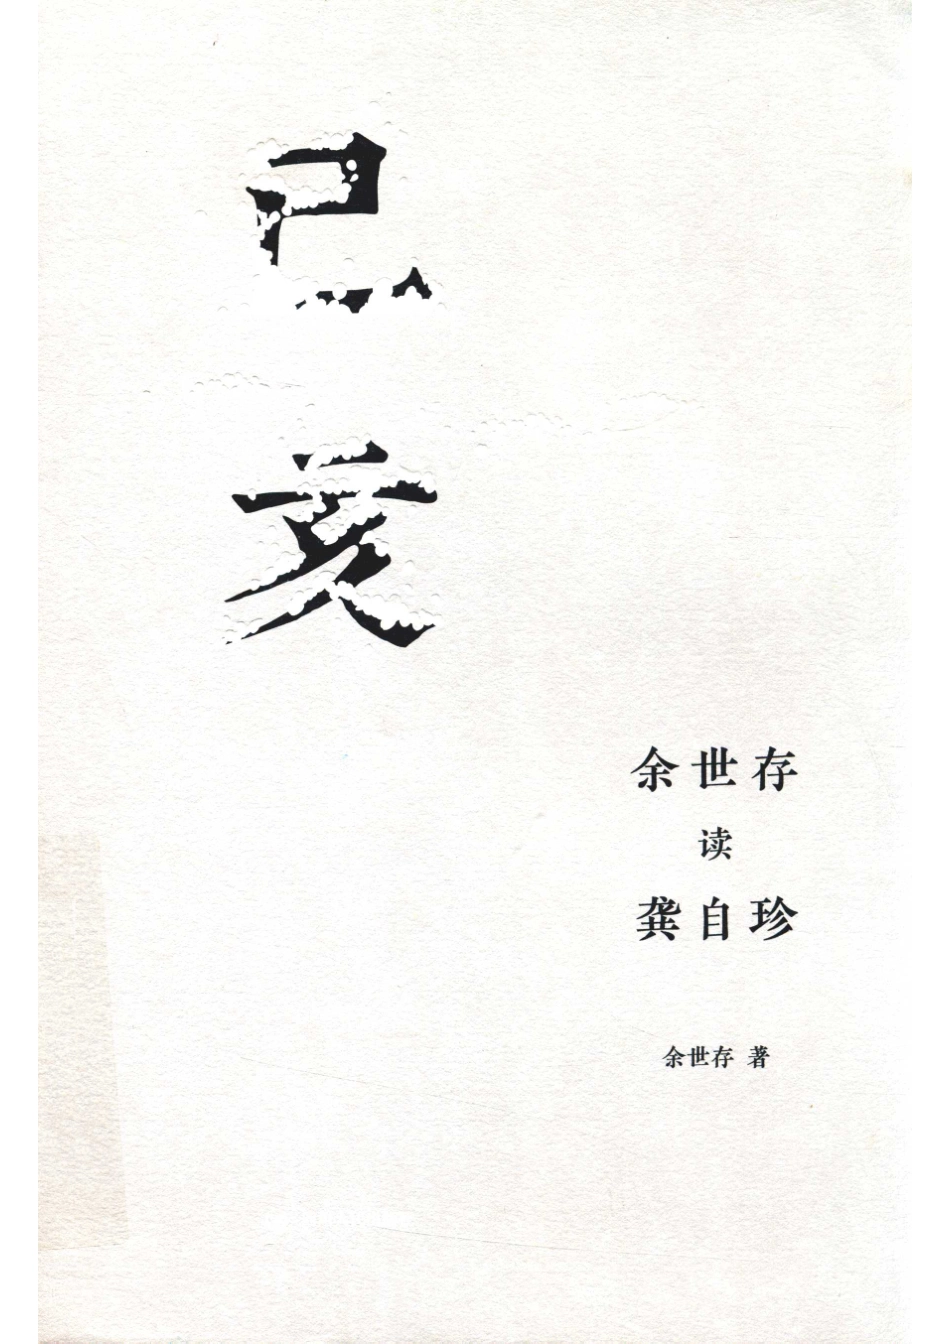 己
亥
余世存
读
龚自珍
余世存 著